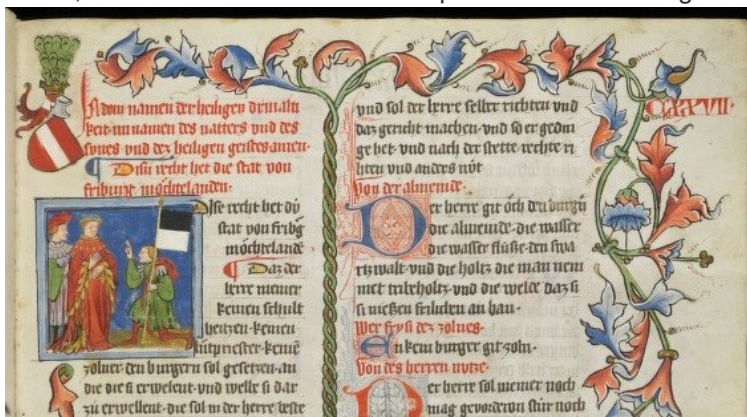 In dem namen der heiligen drinalti
keit· im namen des vatters vnd des
sunes· vnd des heiligen geistes amen·
Disu recht het die stat von
friburg in öchtelanden·
Dise recht het dü
stat von fribg
in öchtelandē
Daz der
herre niemer
keinen schult
heitzen· keinen
lütpriester· keinē
zolner den burgern sol gesetzen· an
die die si erwelent· vnd welle si dar
zů erwellent· die sol in der herre beste
CXXVII·
vnd sol der herre selber richten vnd
daz gericht machen· vnd so er gedin
ge het· vnd nach der stette rechte ri
hten vnd anders nüt
Von der almeinde·
Der herre git öch den burgern
die almeinde· die wasser
die wasser flüsse· den swa
rtzwalt· vnd die holtz die man nem
met· vnd die welde daz si
si niessen frilichen an ban·
Wer frÿ si dez zolnes·
Enkein burger git zoln·
Von des herren nutze·
Der herre sol niemer noch
mag gevorderon stür noch